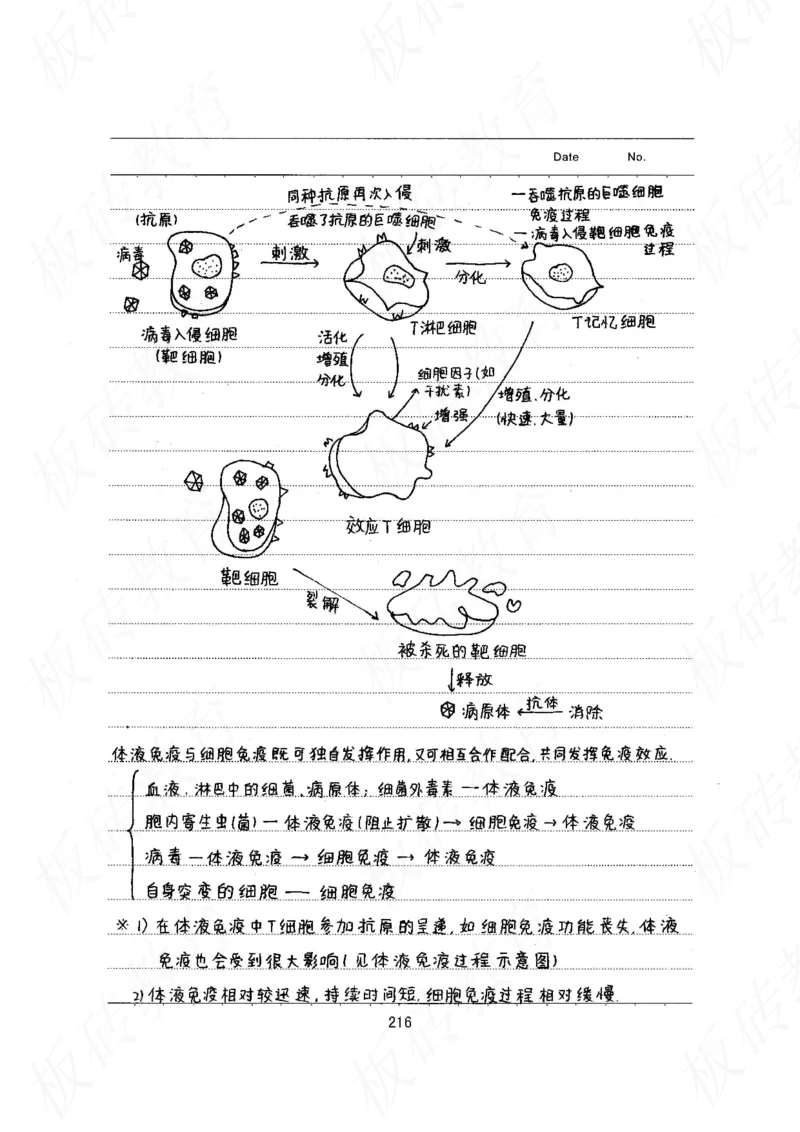 Date No.
同种抗原再次入侵
一吞噬抗原的巨噬细胞
免疫过程
一病毒入侵靶细胞免疫
过程
(抗原)
吞噬了抗原的巨噬细胞
病毒
刺激
刺激
分化
T淋巴细胞
T记忆细胞
病毒入侵细胞
(靶细胞)
活化
增殖
分化
细胞因子(如
干扰素)
增强
增殖、分化
(快速、大量)
效应T细胞
靶细胞
裂解
被杀死的靶细胞
释放
病原体 抗体 消除
体液免疫与细胞免疫既可独自发挥作用,又可相互合作配合,共同发挥免疫效应.
血液、淋巴中的细菌、病原体;细菌外毒素 — 体液免疫
胞内寄生虫(菌) — 体液免疫(阻止扩散) → 细胞免疫 → 体液免疫
病毒 — 体液免疫 → 细胞免疫 → 体液免疫
自身突变的细胞 — 细胞免疫
※ 1) 在体液免疫中T细胞参加抗原的呈递,如细胞免疫功能丧失,体液
免疫也会受到很大影响(见体液免疫过程示意图)
2) 体液免疫相对较迅速,持续时间短.细胞免疫过程相对缓慢.
216
板砖教育